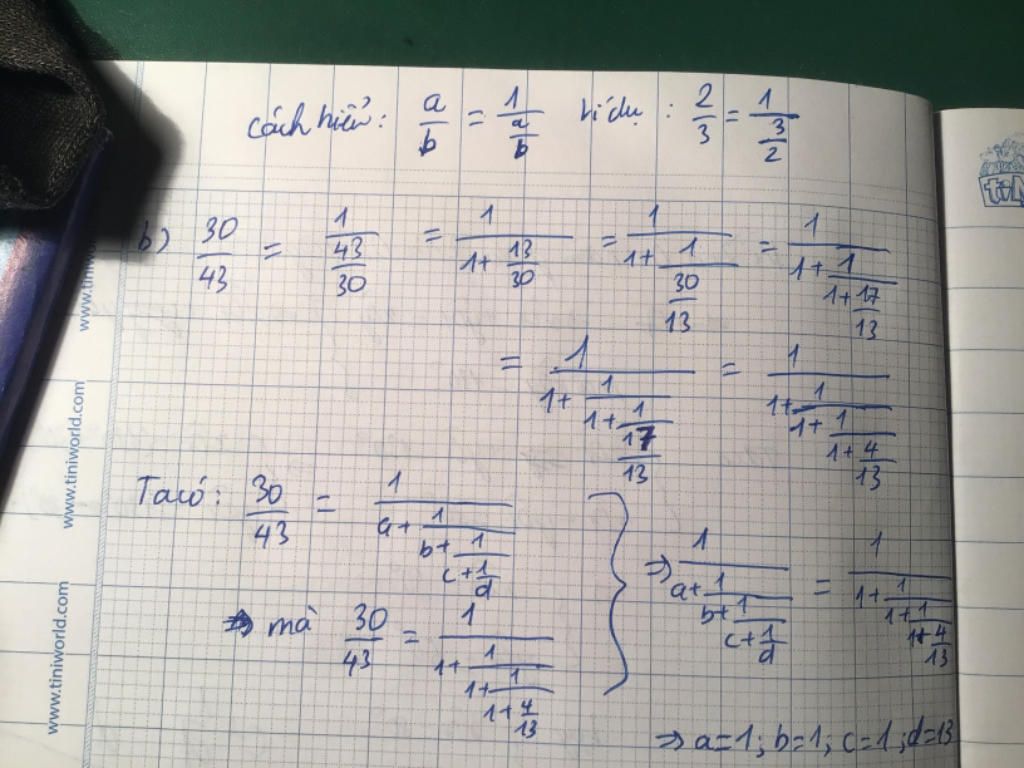 cách hiểu: a/b = 1/(a/b) ví dụ : 2/3 = 1/(3/2)
b) 30/43 = 1/(43/30) = 1/(1+13/30) = 1/(1+1/(30/13)) = 1/(1+1/(1+17/13))
= 1/(1+1/(1+1/(17/13))) = 1/(1+1/(1+1/(1+4/13)))
Ta có: 30/43 = 1/(a+1/(b+1/(c+1/d)))
=> 1/(a+1/(b+1/(c+1/d))) = 1/(1+1/(1+1/(1+4/13)))
mà 30/43 = 1/(1+1/(1+1/(1+4/13)))
=> a=1; b=1; c=1; d=13
www.tiniworld.com
www.tiniworld.com
www.tiniworld.com